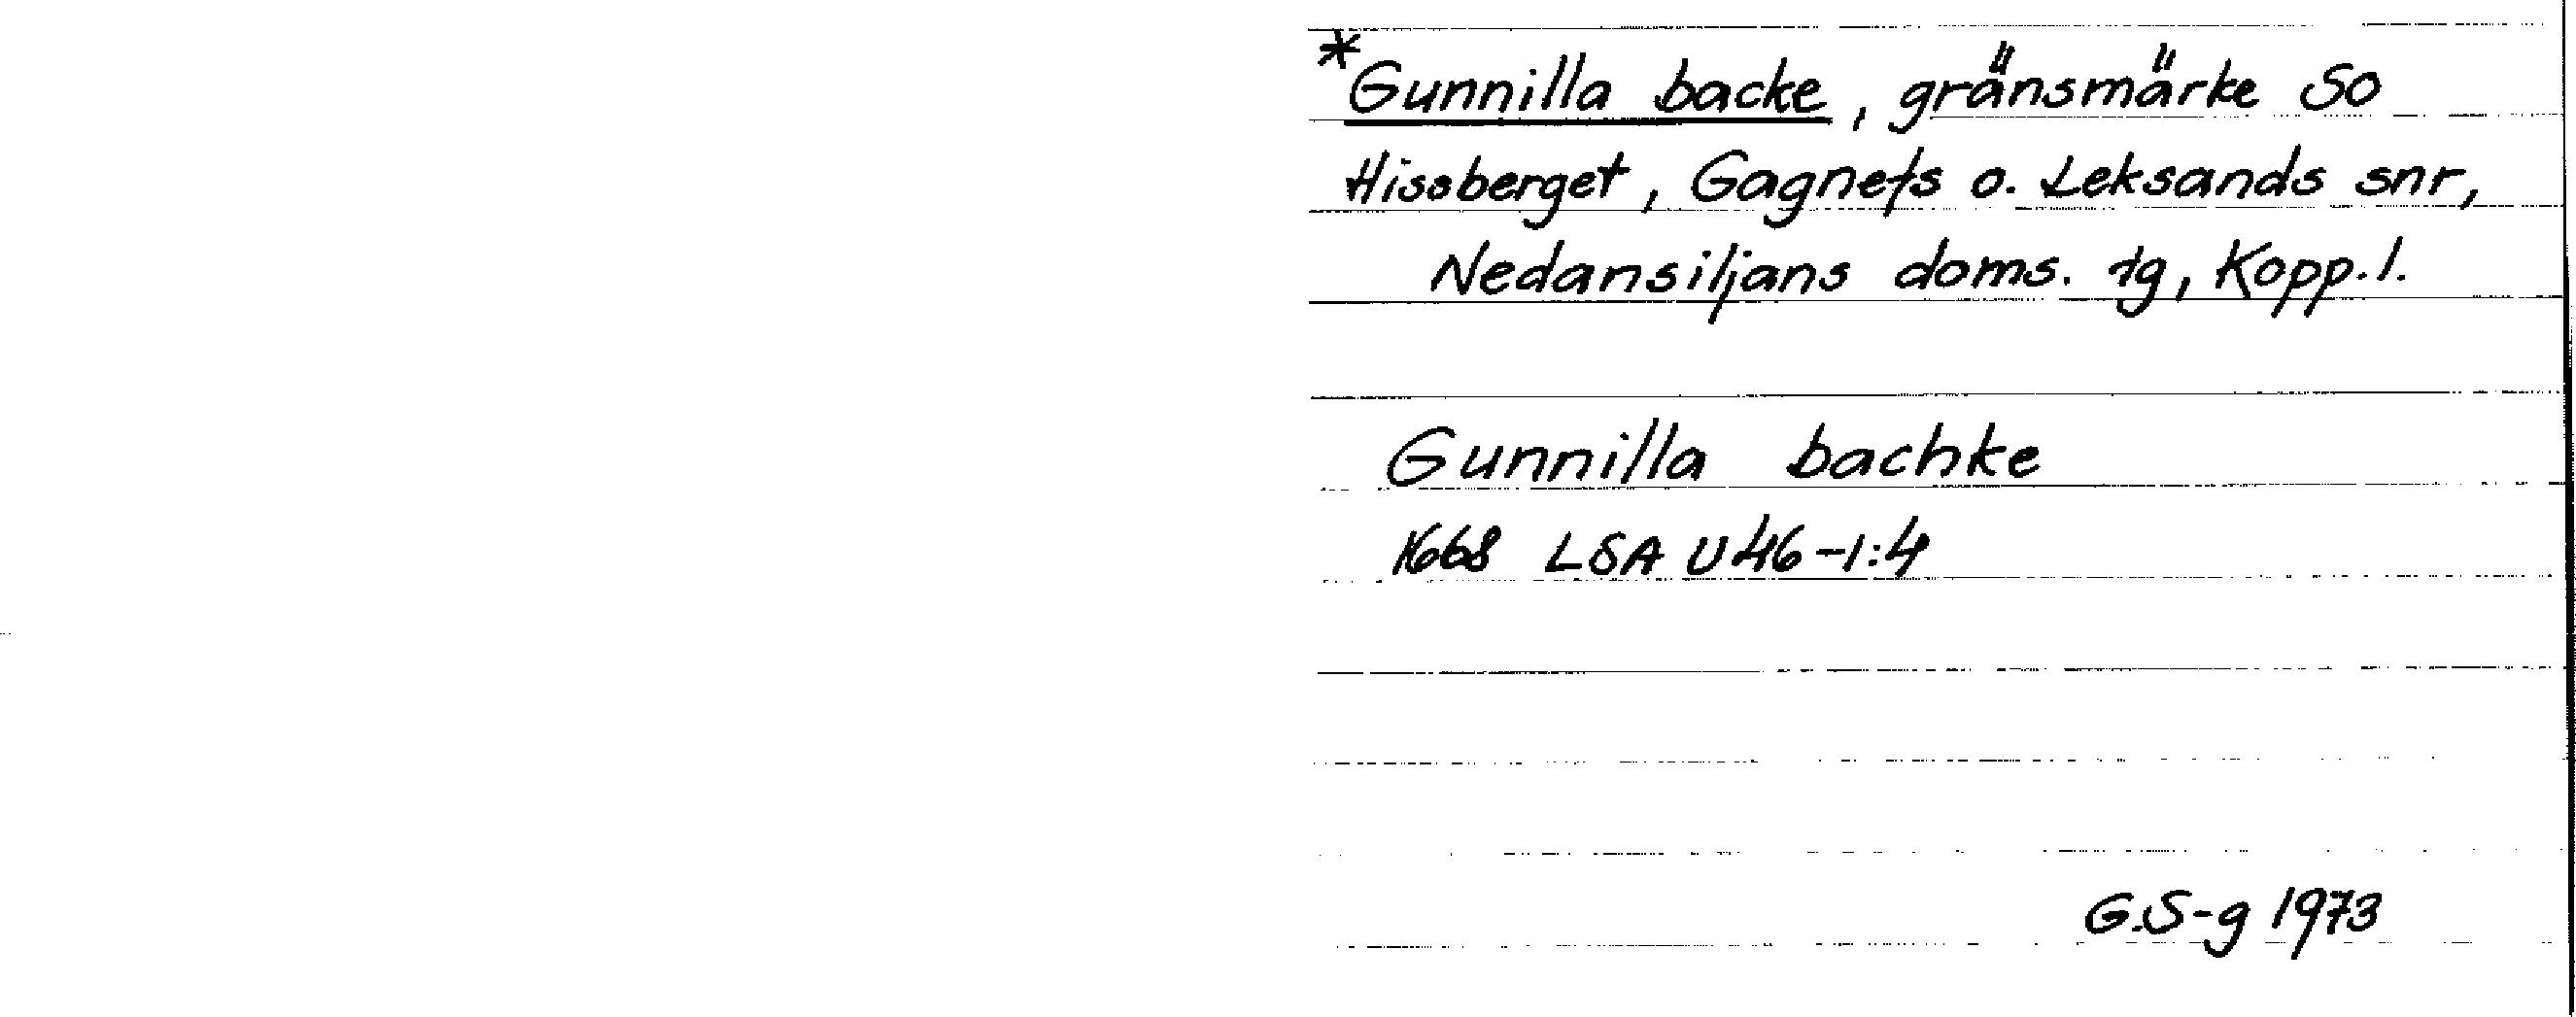 *Gunnilla backe, gränsmärke SO
Hissberget, Gagnefs o. Leksands snr,
Nedansiljans doms. tg, Kopp. l.
Gunnilla bachke
1668 LSA U46-1:4
G.S-g 1973